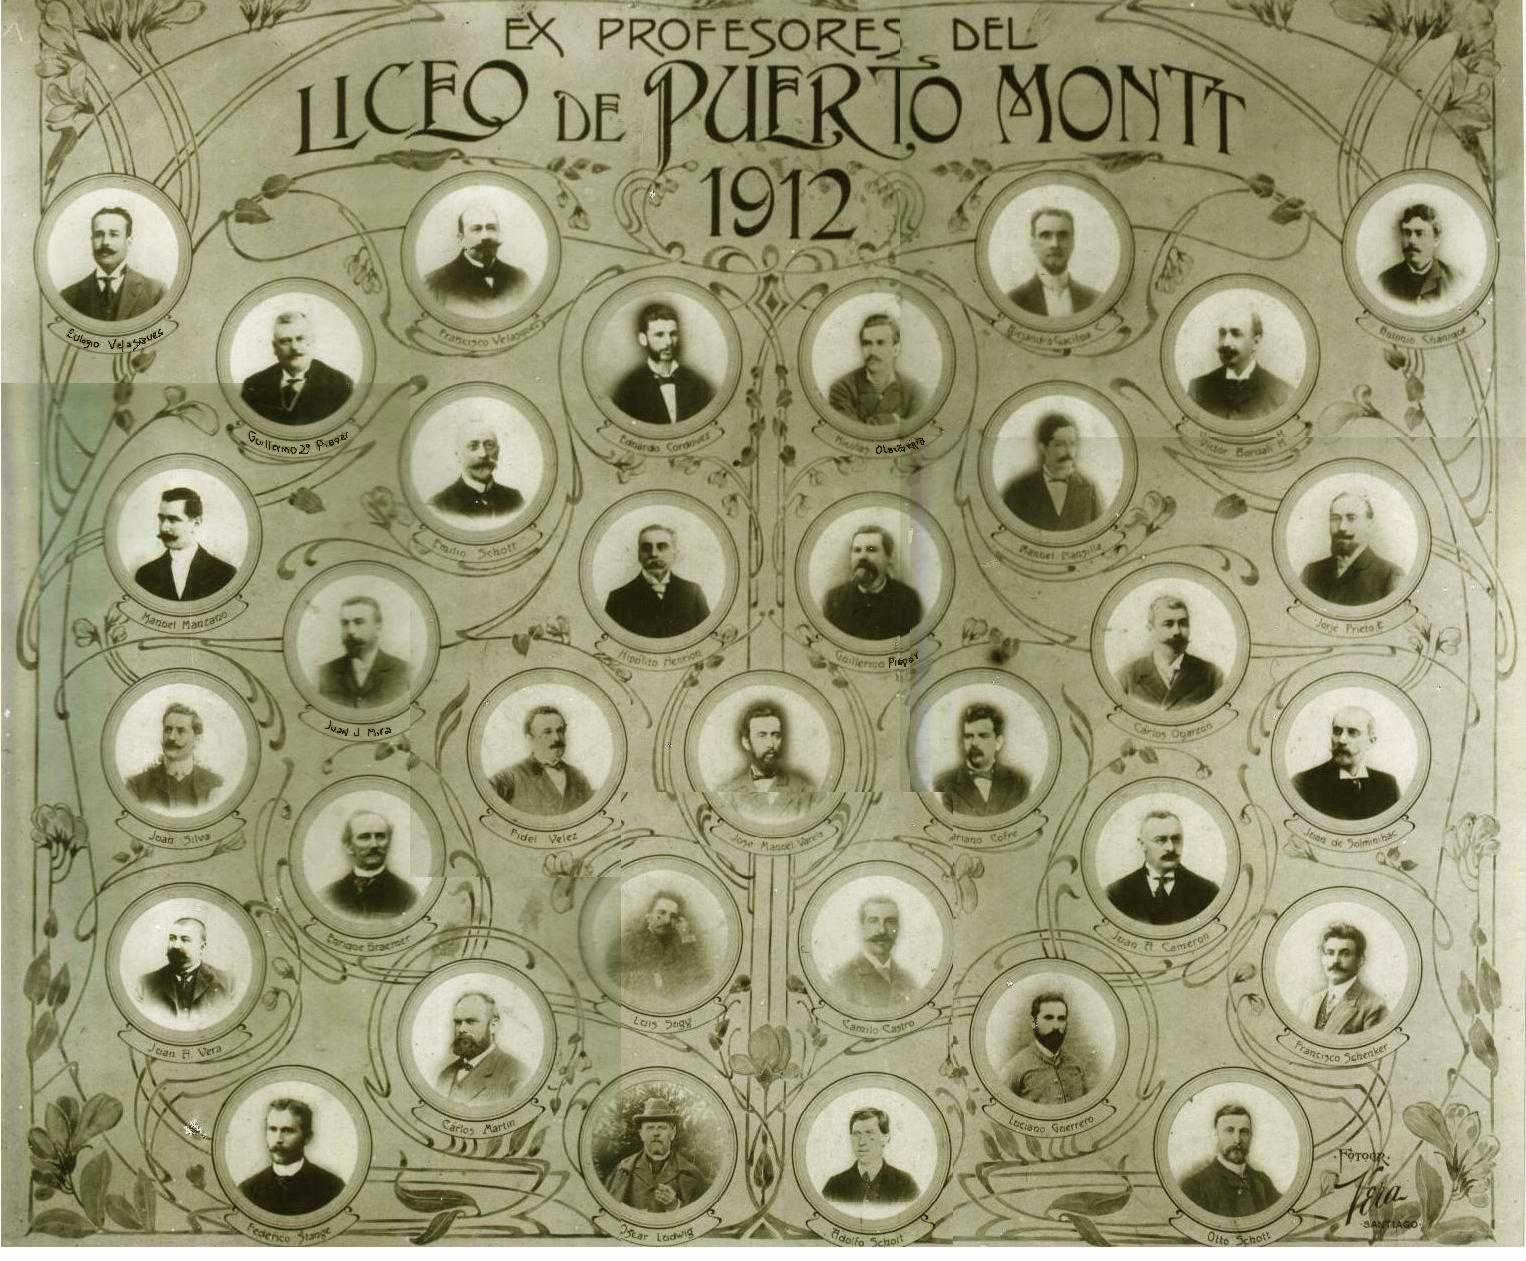 EX PROFESORES DEL
LICEO DE PUERTO MONTT
1912
Eulogio Velasques
Francisco Velasquez
Alejandro Gacitua C.
Antonio Chanique
Guillermo 2º Pieper
Eduardo Cordovez
Nicolas
Victor Borgali H.
Emilio Schott
Manuel Mansilla
Manuel Manzano
Hipolito Henrion
Guillermo Pieper
Jorje Prieto E
Juan J Mira
Carlos Oyarzon
Juan Silva
Fidel Velez
Jose Manuel Varela
ariano Cofre
Juan de Solminihac
Enrique Graemer
Juan A. Cameron
Juan A. Vera
Luis Sogg
Camilo Castro
Francisco Schenker
Carlos Martin
Luciano Guerrero
Federico Stange
Oscar Ludwig
Adolfo Schott
Otto Schott
FOTOGR.
Vera
SANTIAGO